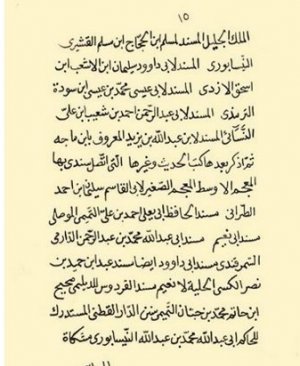 ١٥
الملك الجليل المسند لمسلم بن الحجاج ابن مسلم القشيري
النيسابوري المسند لابى داوود سليمان ابن الاشعث ابن
اسحق الازدى المسند لابى عيسى محمد بن عيسى ابن سودة
الترمذى المسند لابى عبد الرحمن احمد بن شعيب ابن على
النسائى المسند لابن عبد الله بن يزيد المعروف بابن ماجه
ثم اذكر بعدها كتب الحديث وغيرها التى اتصل سندى بها
المعجم الاوسط المعجم الصغير لابى القاسم سليمان ابن احمد
الطبرانى مسند الحافظ ابى يعلى احمد بن على التميمى الموصلى
مسند ابى نعيم مسند ابى عبد الله محمد بن عبد الرحمن الدارمى
التمرقندى مسند ابى داوود ايضا مسند عبد ابن حميد بن
نصر الكسى الحلية لابى نعيم مسند الفردوس للديلمى صحيح
ابن حاتم محمد بن حبان التميمى سنن الدارقطنى المستدرك
للحاكم ابى عبد الله محمد بن عبد الله النيسابورى مشكاة